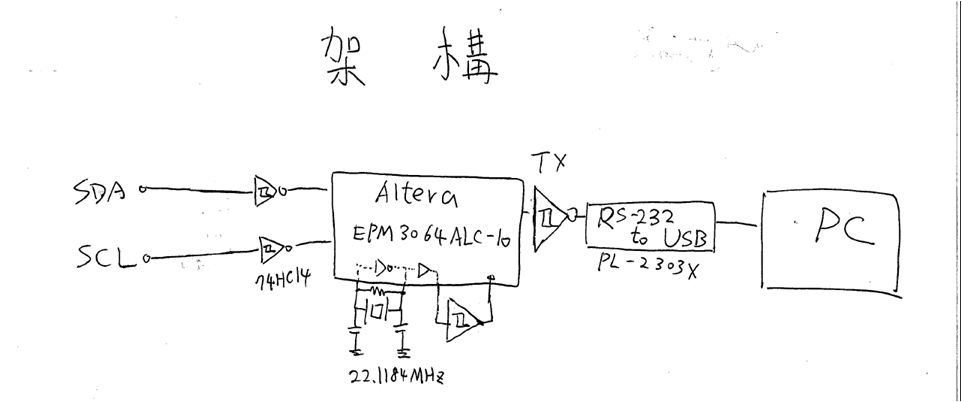 架構
TX
SDA
Altera
EPM3064ALC-10
RS-232
to USB
PL-2303X
PC
SCL
74HC14
22.1184MHz